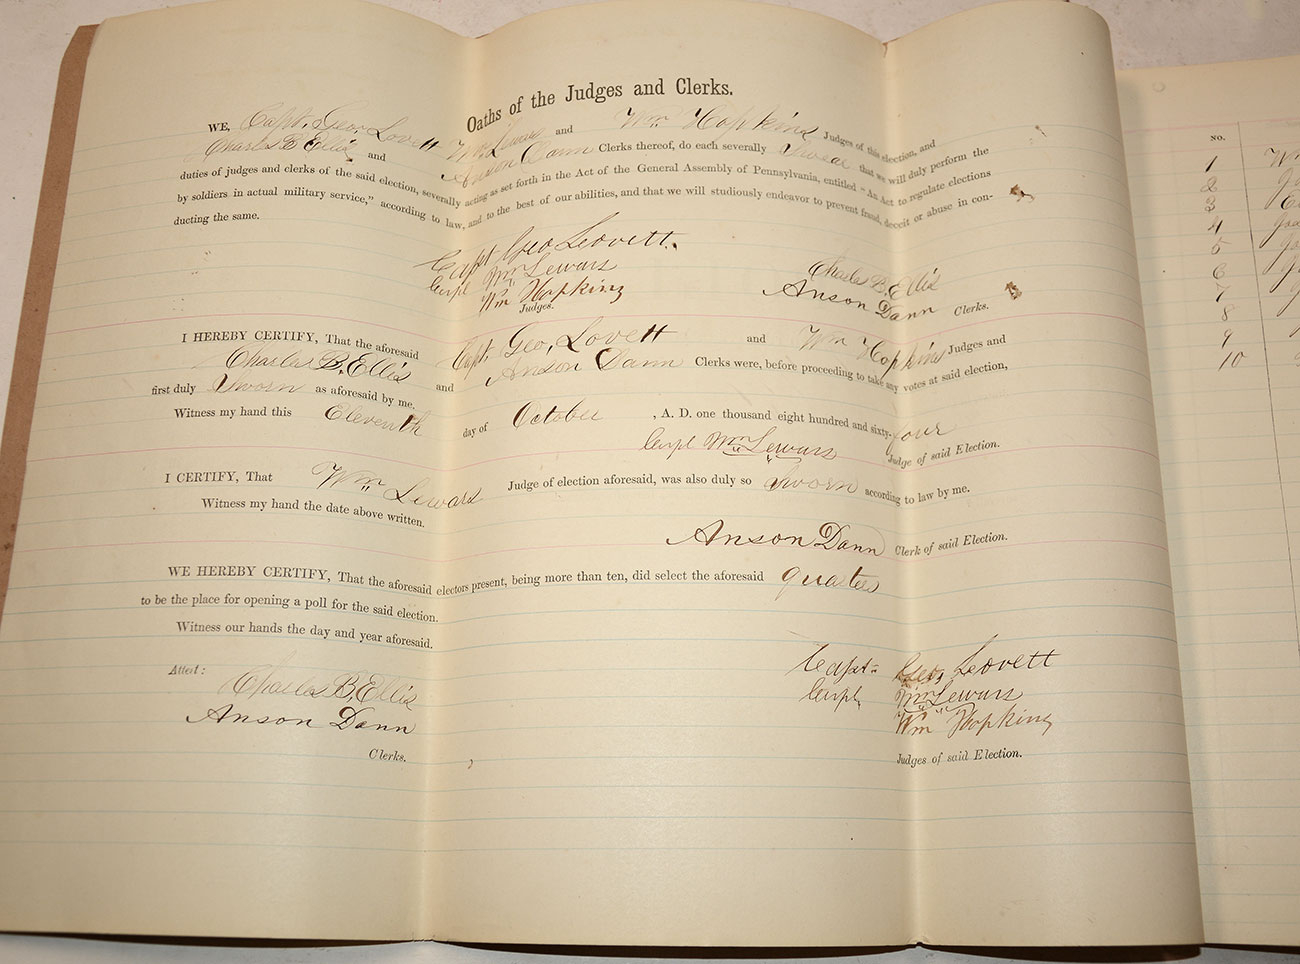 Oaths of the Judges and Clerks.
WE, Capt. Geo. Lovett Wm Lewars and Wm Hopkins Judges of this election, and
Charles B Ellis and Anson Dann Clerks thereof, do each severally Swear that we will duly perform the
duties of judges and clerks of the said election, severally acting as set forth in the Act of the General Assembly of Pennsylvania, entitled "An Act to regulate elections
by soldiers in actual military service," according to law, and to the best of our abilities, and that we will studiously endeavor to prevent fraud, deceit or abuse in con-
ducting the same.
Capt Geo Leovett.
Corpl Wm Lewars
Wm Hopkins
Judges.
Charles B. Ellis
Anson Dann Clerks.
I HEREBY CERTIFY, That the aforesaid Capt. Geo, Lovett and Wm Hopkins Judges and
Charles B. Ellis and Anson Dann Clerks were, before proceeding to take any votes at said election,
first duly Sworn as aforesaid by me.
Witness my hand this Eleventh day of October , A. D. one thousand eight hundred and sixty-four
Corpl Wm Lewars Judge of said Election.
I CERTIFY, That Wm Leward Judge of election aforesaid, was also duly so Sworn according to law by me.
Witness my hand the date above written.
Anson Dann Clerk of said Election.
WE HEREBY CERTIFY, That the aforesaid electors present, being more than ten, did select the aforesaid quarters
to be the place for opening a poll for the said election.
Witness our hands the day and year aforesaid.
Attest:
Charles B. Ellis
Anson Dann
Clerks.
Capt- Geo, Leovett
Corpl, Wm Lewars
Wm Hopkins
Judges of said Election.
NO.
1
2
3
4
5
6
7
8
9
10